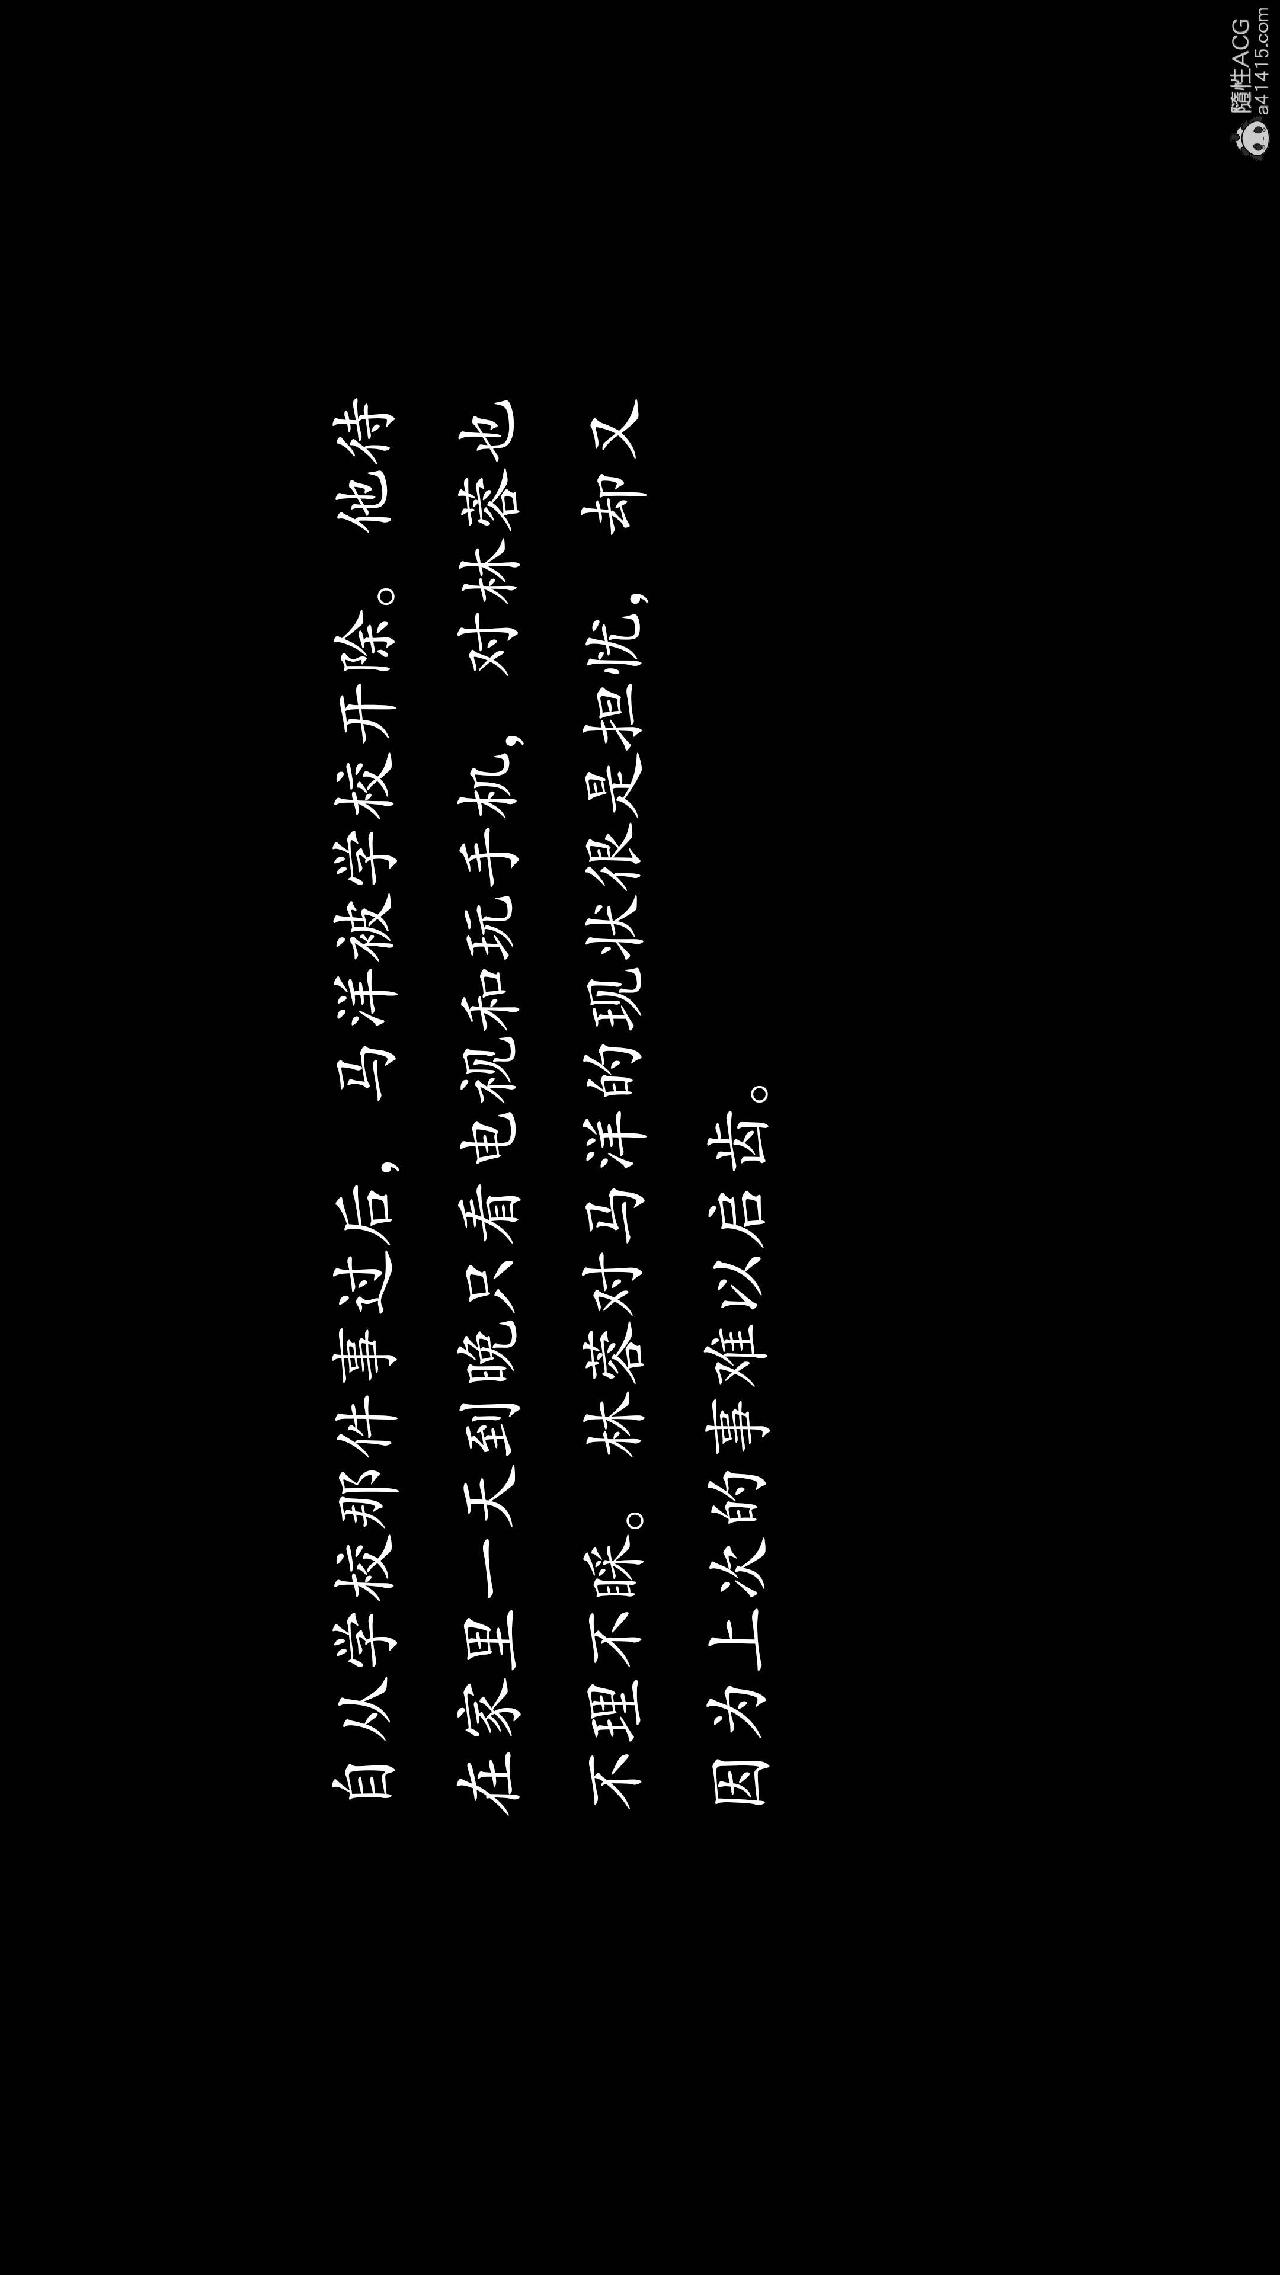 隨性ACG
a41415.com
自从学校那件事过后，马洋被学校开除。他待
在家里一天到晚只看电视和玩手机，对林蓉也
不理不睬。林蓉对马洋的现状很是担忧，却又
因为上次的事难以启齿。